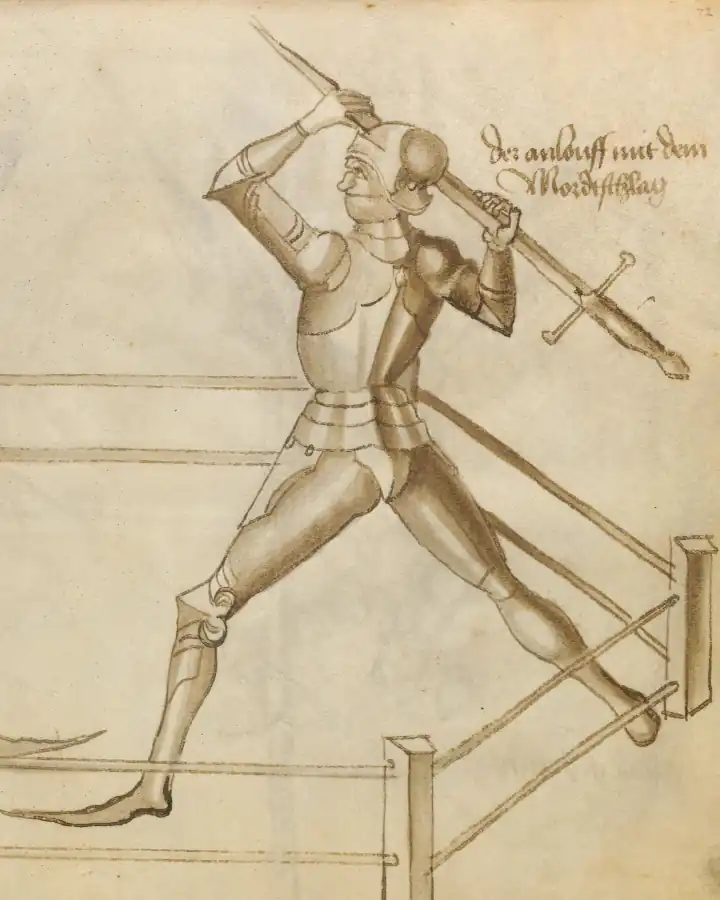 72
der anlouff mit dem
Mordtschlag